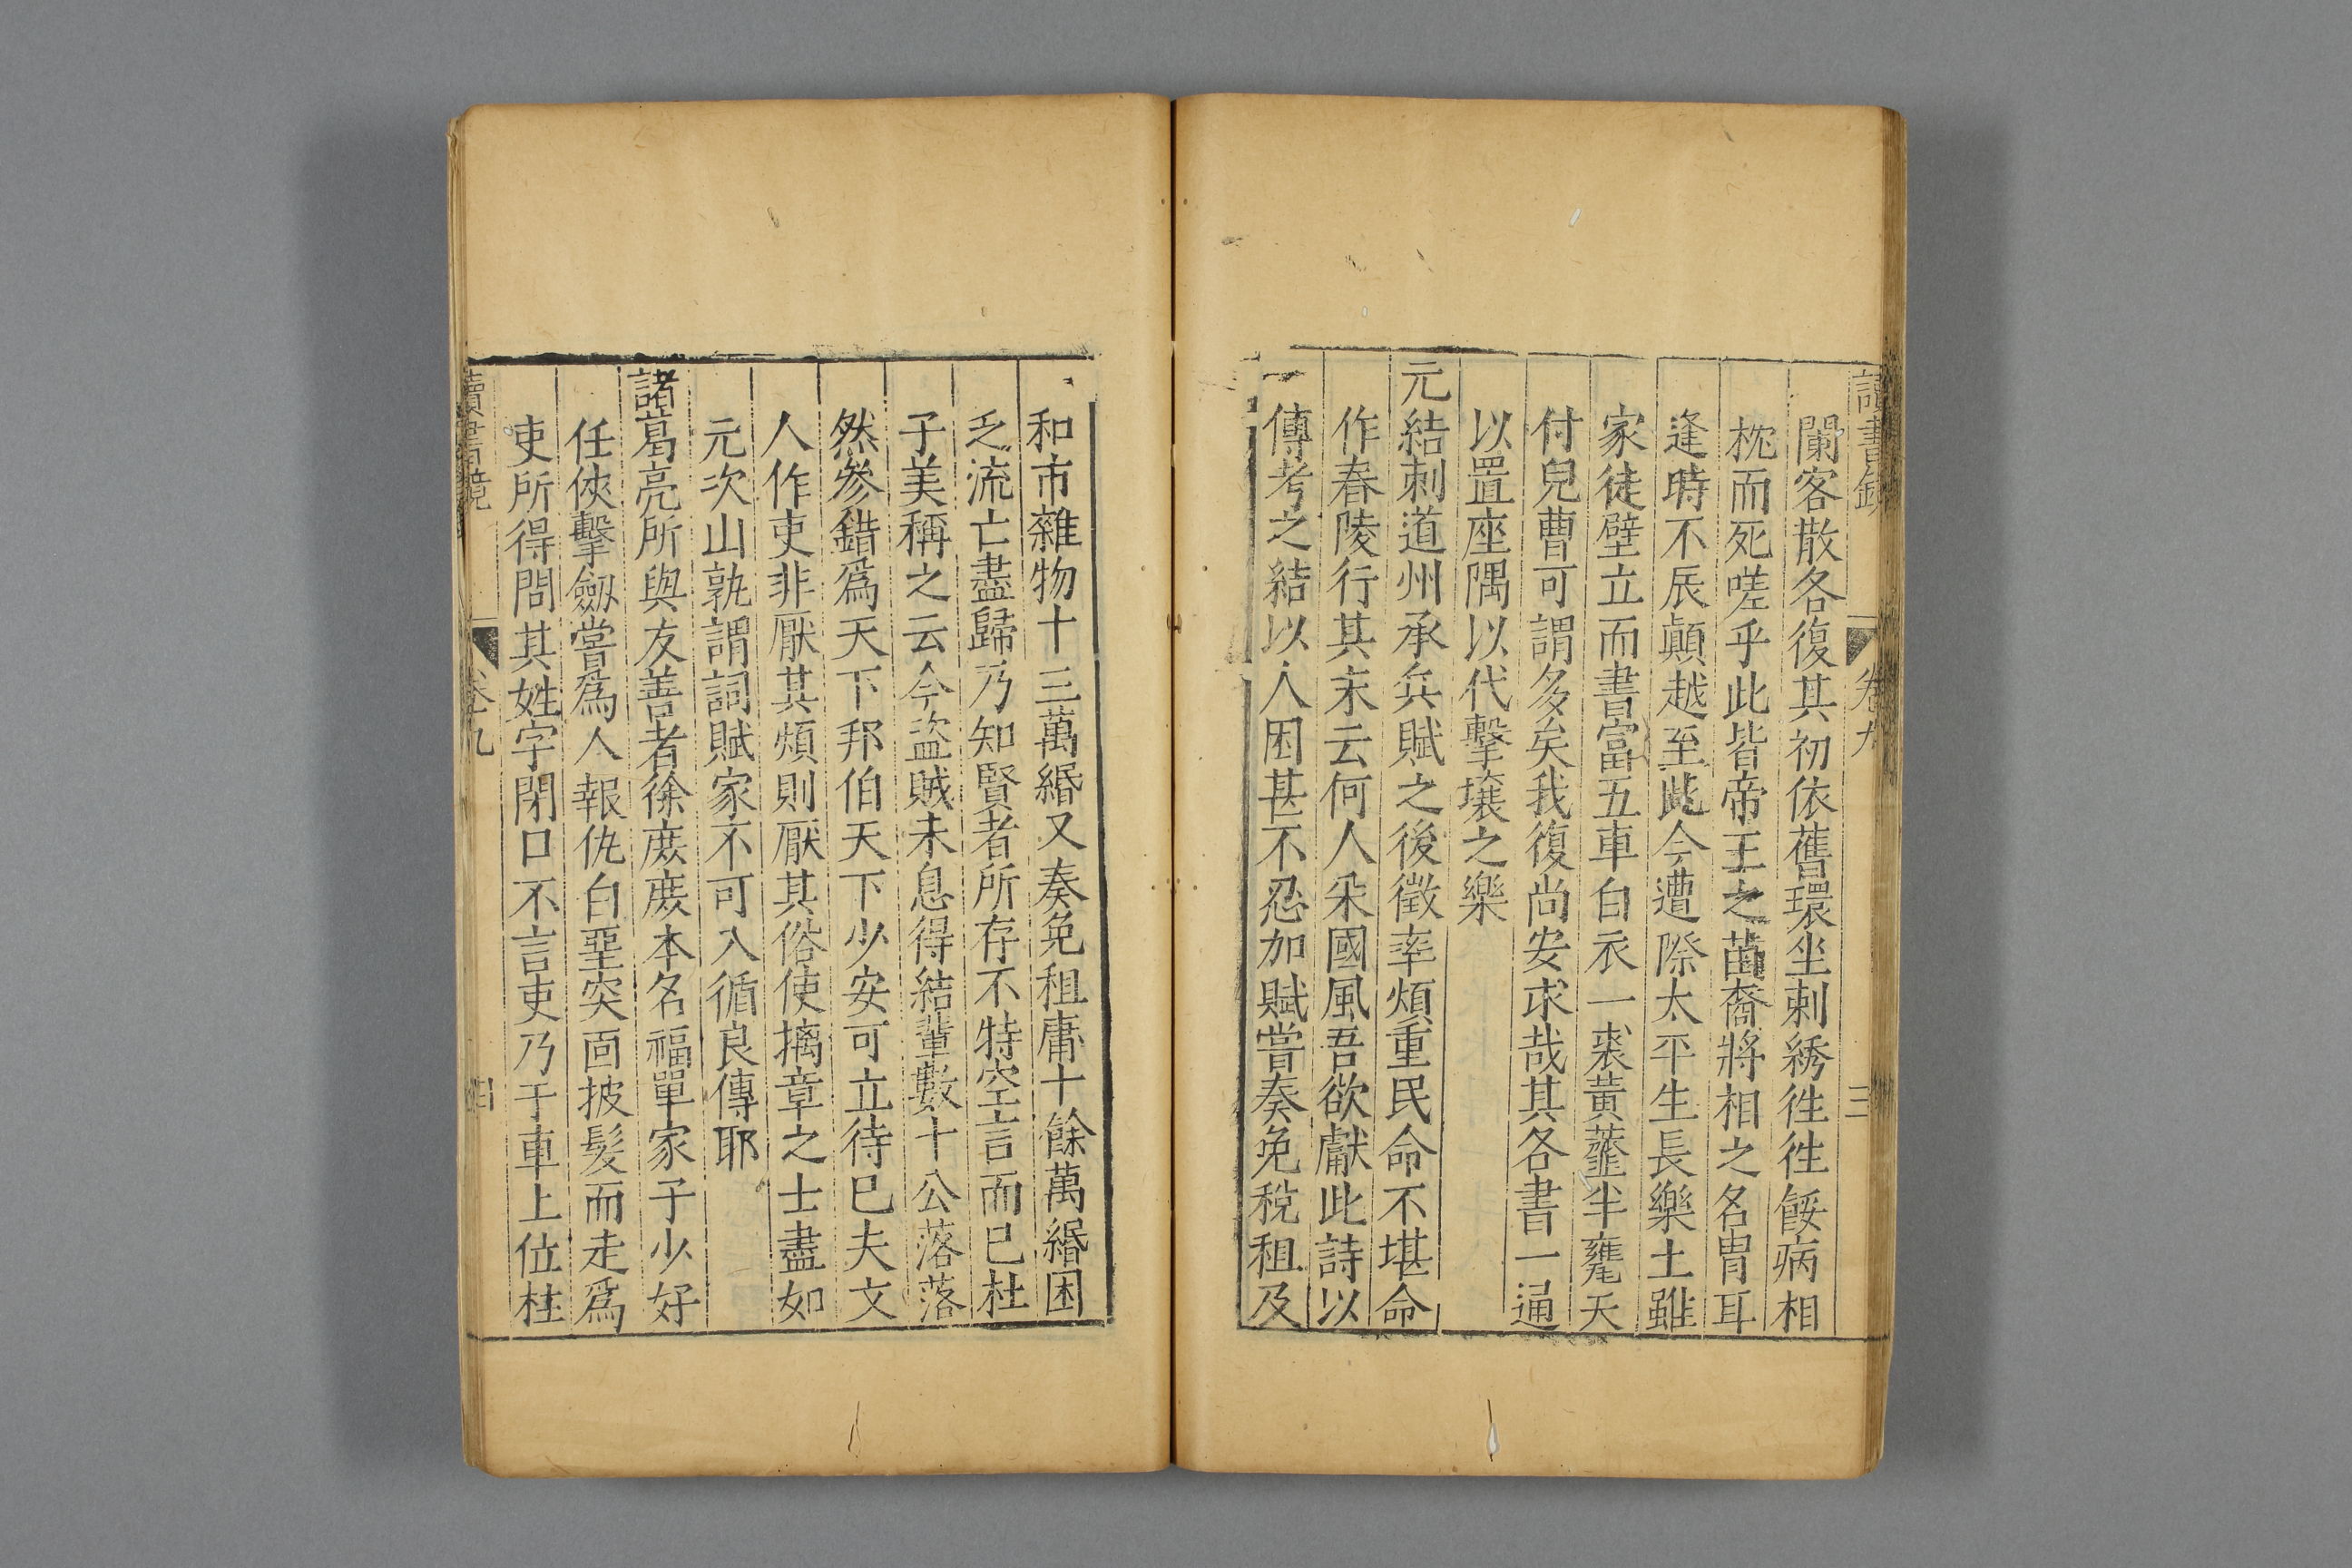 讀書鏡 卷九 三
闌客散各復其初依舊環坐刺綉徃徃餒病相
枕而死嗟乎此皆帝王之苗裔將相之名胄耳
逢時不辰顛越至此今遭際太平生長樂土雖
家徒壁立而書富五車白衣一裘黃虀半甕天
付兒曹可謂多矣我復尚安求哉其各書一通
以置座隅以代擊壤之樂
元結刺道州承兵賊之後徵率煩重民命不堪命
作舂陵行其末云何人采國風吾欲獻此詩以
傳考之結以人困甚不忍加賦嘗奏免稅租及
和市雜物十三萬緡又奏免租庸十餘萬緡困
乏流亡盡歸乃知賢者所存不特空言而已杜
子美稱之云今盜賊未息得結輩數十公落落
然參錯爲天下邦伯天下少安可立待巳夫文
人作吏非厭其煩則厭其俗使摛章之士盡如
元次山孰謂詞賦家不可入循良傳耶
諸葛亮所與友善者徐庻庻本名福單家子少好
任俠擊劔嘗爲人報仇白堊突面披髮而走爲
吏所得問其姓字閉口不言吏乃于車上位柱
讀書鏡 卷九 四